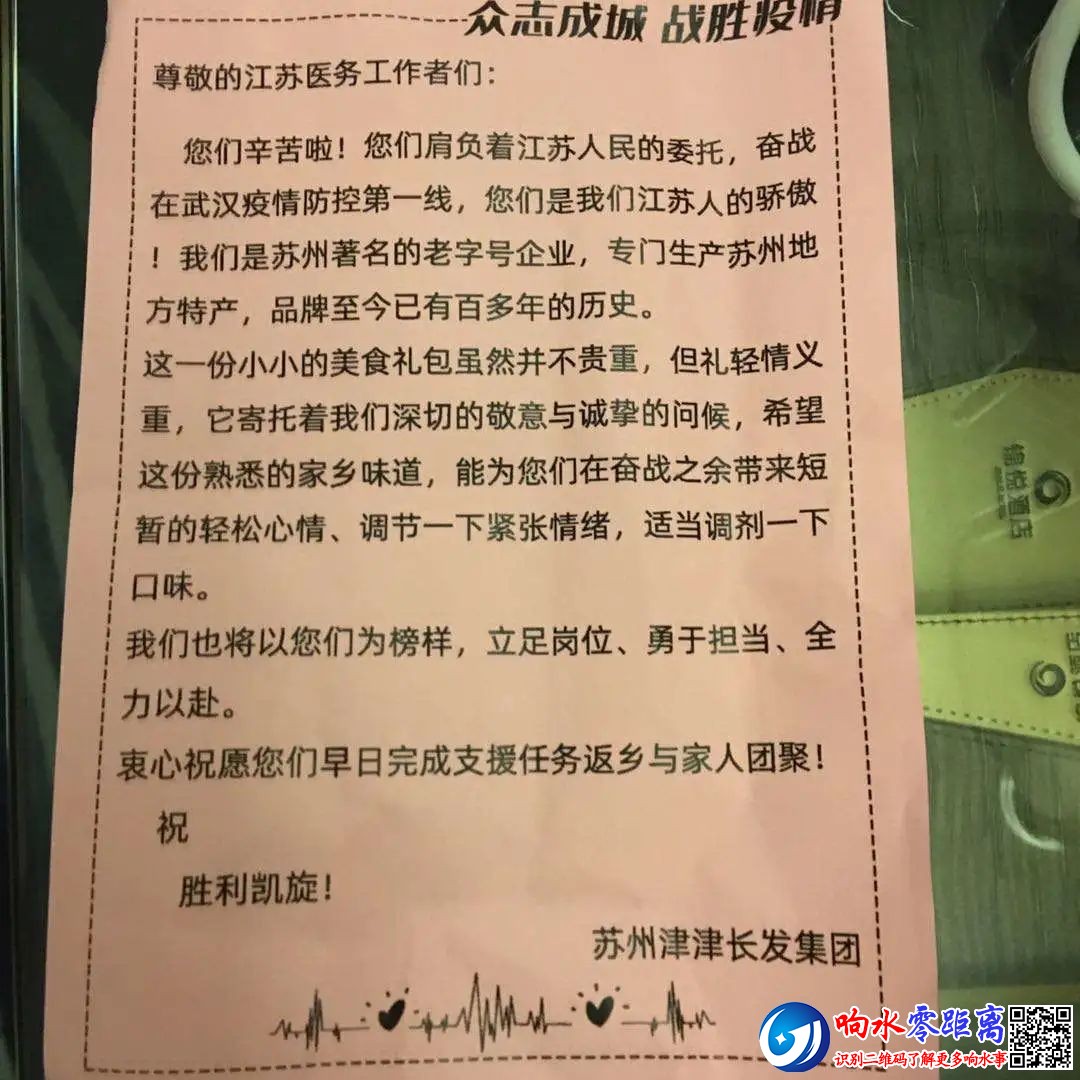 众志成城 战胜疫情
尊敬的江苏医务工作者们：
您们辛苦啦！您们肩负着江苏人民的委托，奋战
在武汉疫情防控第一线，您们是我们江苏人的骄傲
！我们是苏州著名的老字号企业，专门生产苏州地
方特产，品牌至今已有百多年的历史。
这一份小小的美食礼包虽然并不贵重，但礼轻情义
重，它寄托着我们深切的敬意与诚挚的问候，希望
这份熟悉的家乡味道，能为您们在奋战之余带来短
暂的轻松心情、调节一下紧张情绪，适当调剂一下
口味。
我们也将以您们为榜样，立足岗位、勇于担当、全
力以赴。
衷心祝愿您们早日完成支援任务返乡与家人团聚！
祝
胜利凯旋！
苏州津津长发集团
悦酒店
响水零距离
识别二维码了解更多响水事